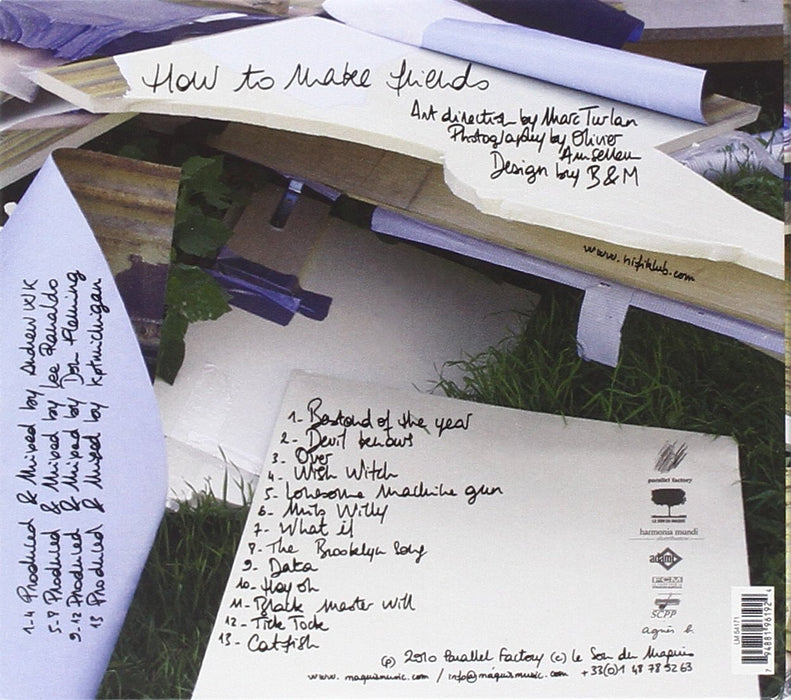 How to make friends
Art direction by Marc Turlan
Photography by Olivier
Amsellem
Design by B & M
www.hifiklub.com
1-4 Produced & Mixed by Andrew WK
5-8 Produced & Mixed by Lee Ranaldo
9-12 Produced & Mixed by Don Fleming
13 Produced & Mixed by Kptmichigan
1- Bestand of the year
2- Devil knows
3- Over
4- Wish Witch
5- Lonesome machine gun
6- Willy
7- What if
8- The Brooklyn Song
9- Data
10- Hay oh
11- Black Master Will
12- Tick Tock
13- Catfish
parallel factory
LE SON DU MAQUIS
harmonia mundi
distribution
adami
FCM
SCPP
agnès b.
(p) 2010 Parallel Factory (c) Le Son du Maquis
www.maquismusic.com / info@maquismusic.com +33(0)1 48 78 52 63
LM 54171
7 94881 96192 4